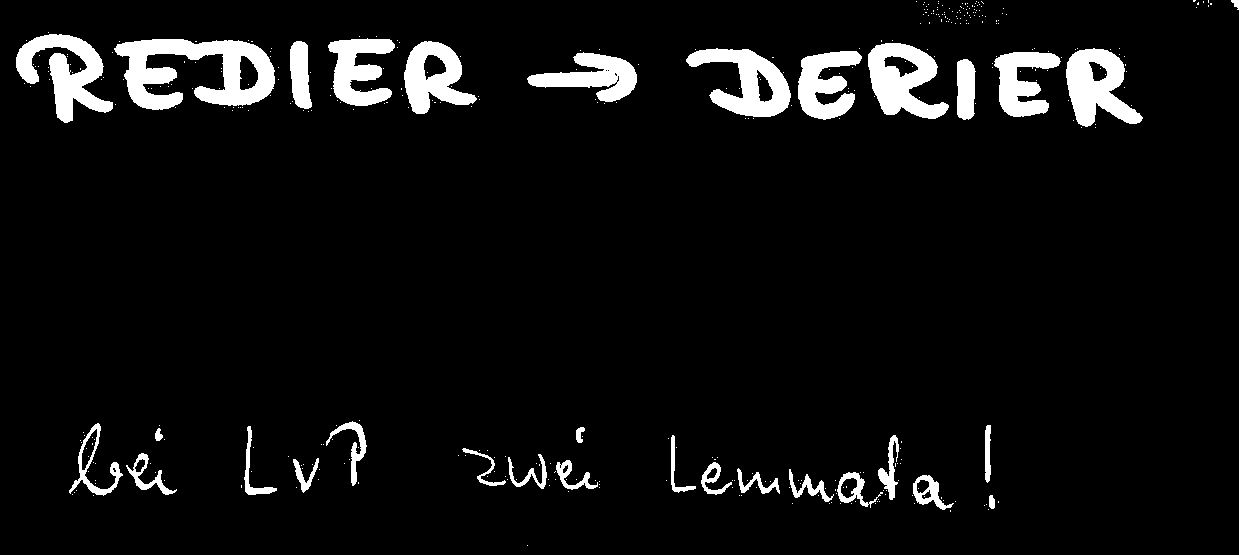 REDIER → DERIER
bei LvP zwei Lemmata!